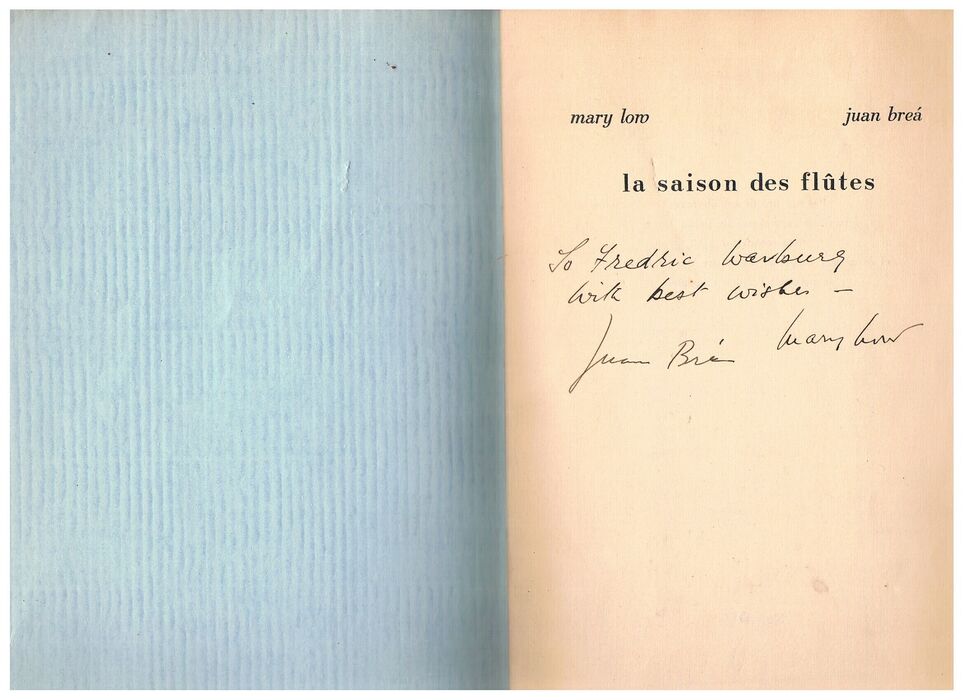 mary low juan breá
la saison des flûtes
To Fredric Warburg
With best wishes —
Juan Breá Mary Low